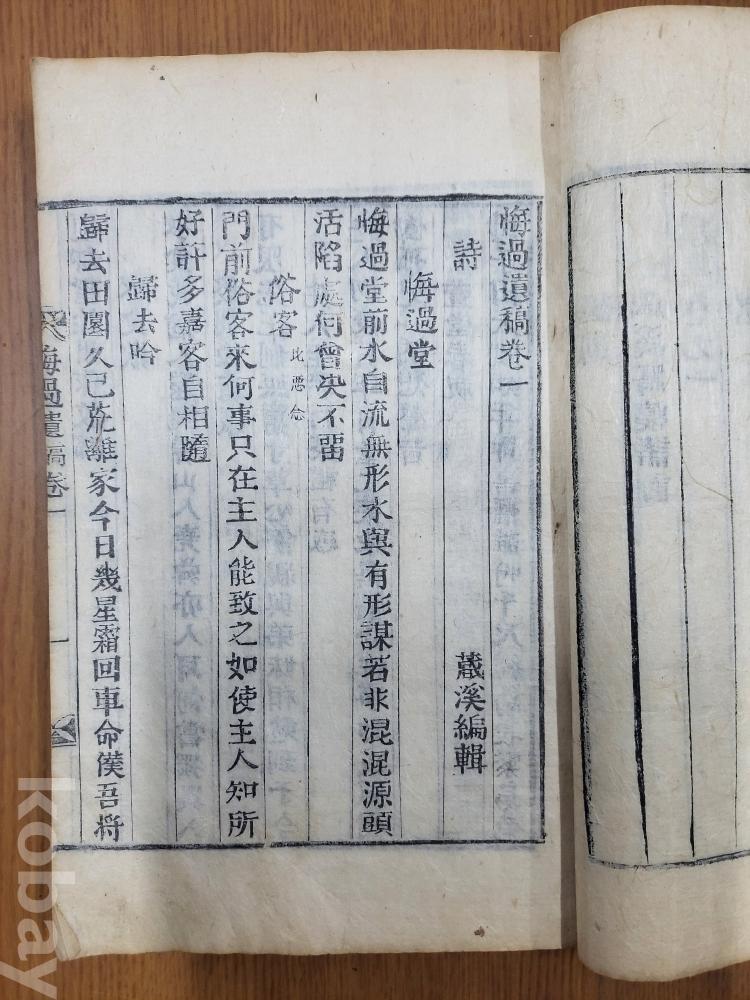 悔過遺稿卷一
詩
蕆溪編輯
悔過堂
悔過堂前水自流無形水與有形謀若非混混源頭
活陷處何曾决不畱
俗客 比惡念
門前俗客來何事只在主人能致之如使主人知所
好許多嘉客自相隨
歸去吟
歸去田園久已荒離家今日幾星霜回車命僕吾將
悔過遺稿卷一
一
kobay